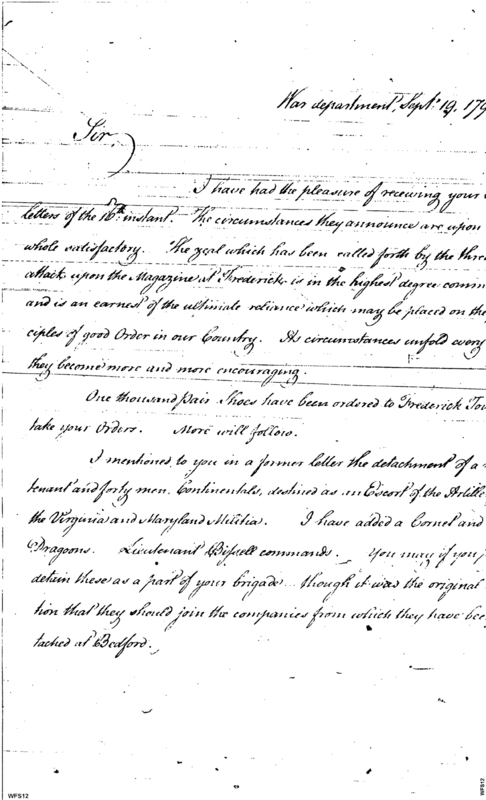 War department, Sept. 19. 179
Sir,
I have had the pleasure of receiving your
letters of the 16th instant. The circumstances they announce are upon
whole satisfactory. The zeal which has been called forth by the thre
attack upon the Magazine at Frederick is in the highest degree comm
and is an earnest of the ultimate reliance which may be placed on the
ciples of good Order in our Country. As circumstances unfold every
they become more and more encouraging.
One thousand pair Shoes have been ordered to Frederick Tow
take your Orders. More will follow.
I mentioned to you in a former letter the detachment of a
tenant and forty men, Continentals, destined as an Escort of the Artille
the Virginia and Maryland Militia. I have added a Cornet and
Dragoons. Lieutenant Bissell commands. You may if you
detain these as a part of your brigade though it was the original
tion that they should join the companies from which they have bee
tached at Bedford.
WFS12
WFS12